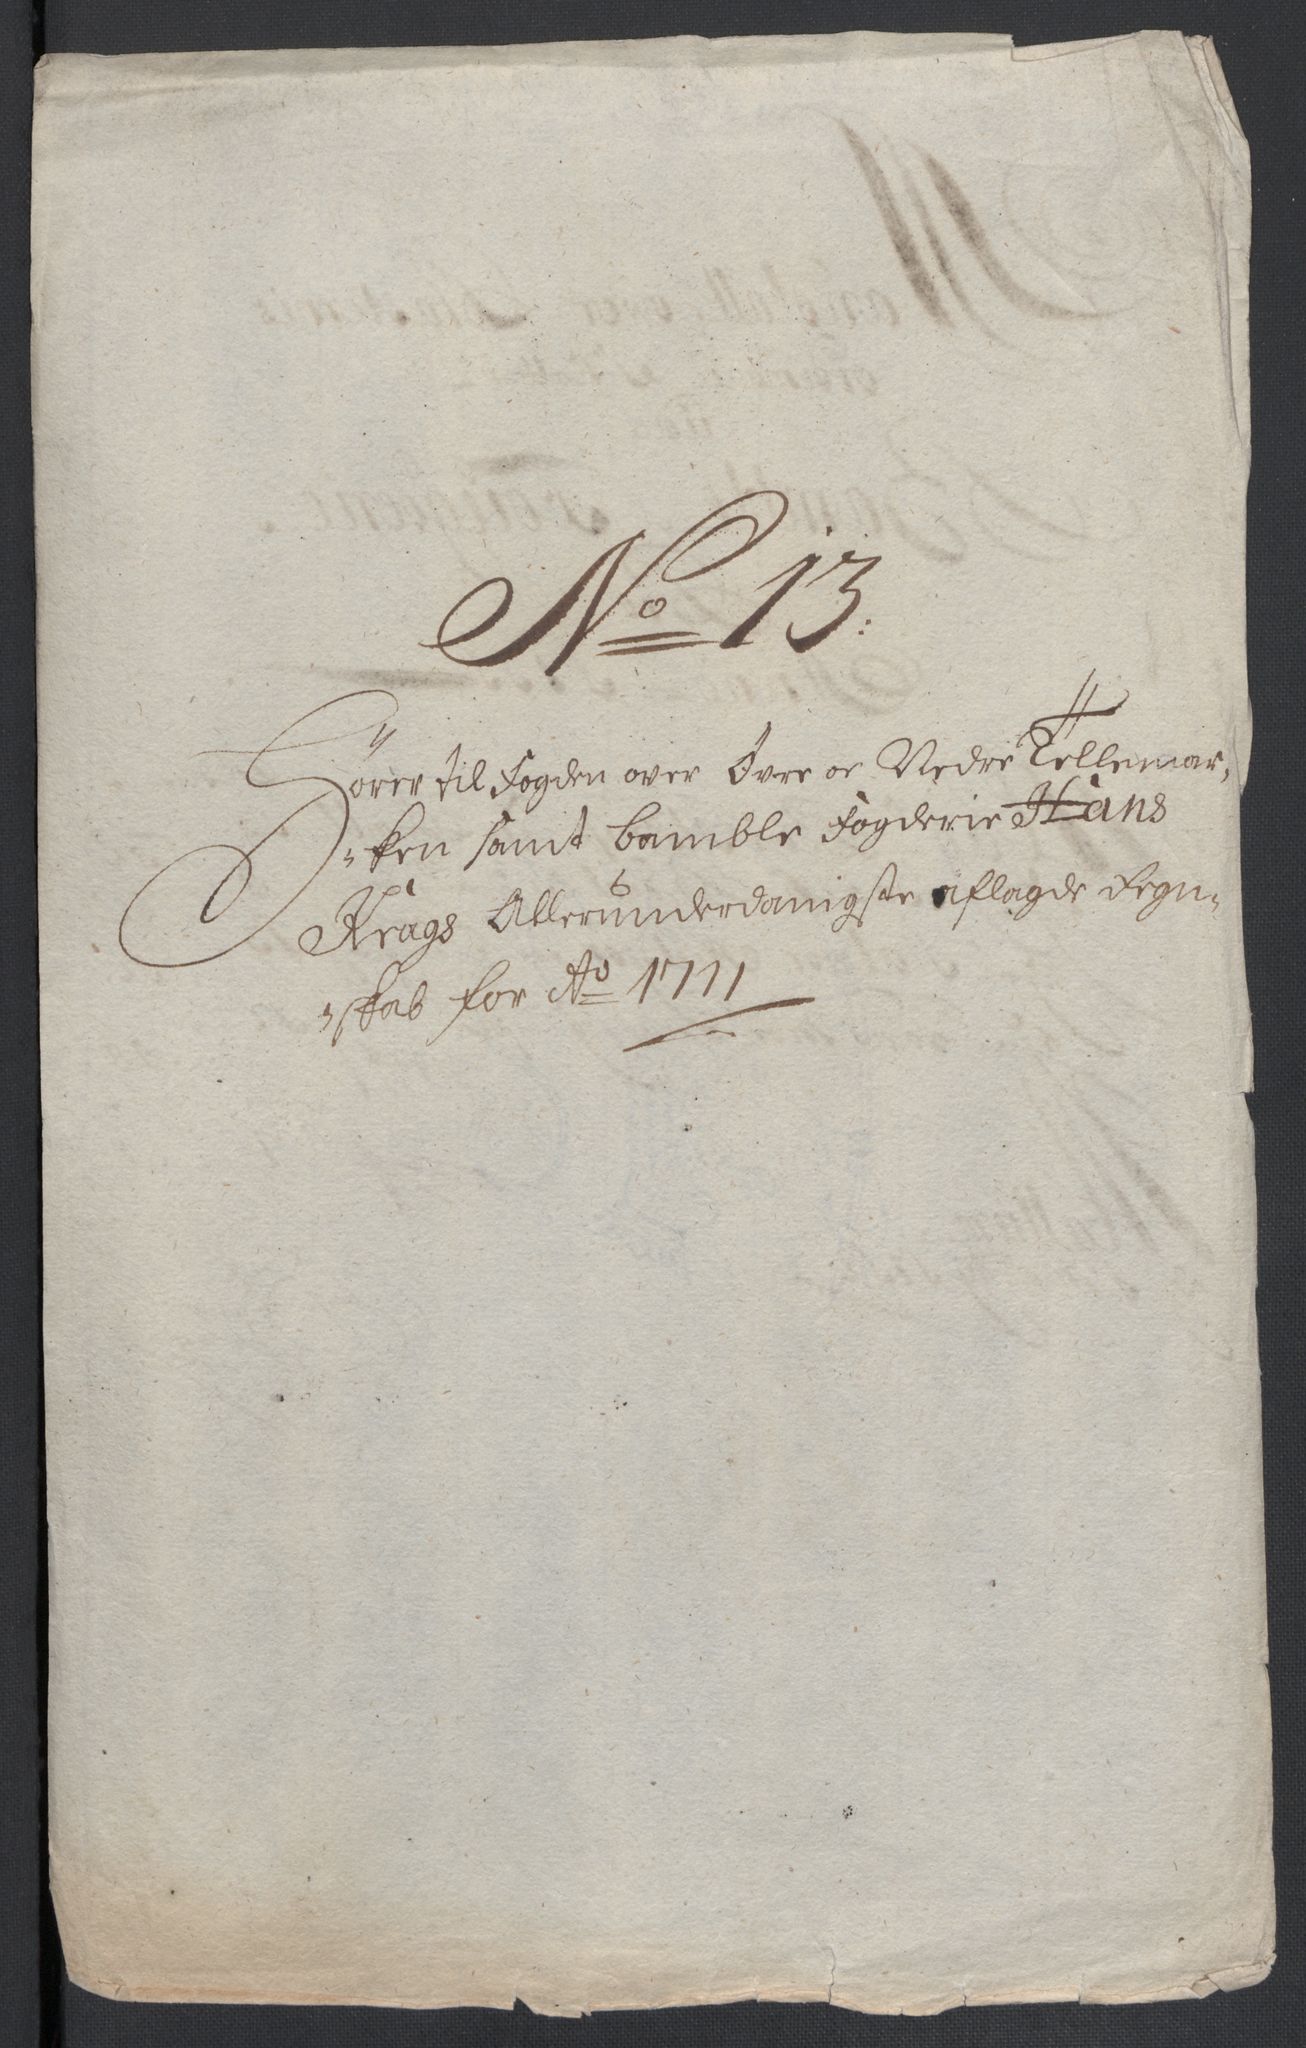 No 13:
Hörer til Fogden over Øvre oc Nedre Tellemar,
"ken samt bamble Fogderie Hans
Krags Allerunderdanigste aflagde Regn,
"skab for Ao 1711